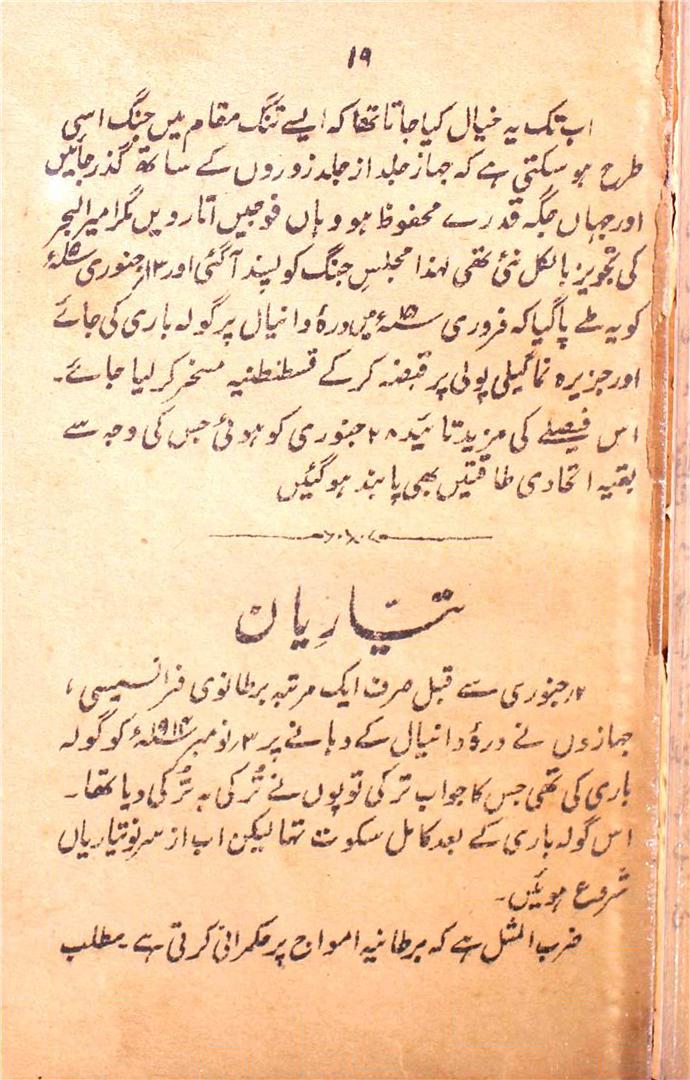 ۱۹
اب تک یہ خیال کیا جاتا تھا کہ ایسے تنگ مقام میں جنگ اسی
طرح ہو سکتی ہے کہ جہاز جلد از جلد زوروں کے ساتھ گذر جائیں
اور جہاں جگہ قدرے محفوظ ہو وہاں فوجیں اتار ویں مگر امیر البحر
کی تجویز بالکل نئی تھی لہذا مجلسِ جنگ کو پسند آ گئی اور ۱۳؍ جنوری ۱۵ء
کو یہ طے پا گیا کہ فروری ۱۵ء میں درۂ دانیال پر گولہ باری کی جائے
اور جزیرہ نما گیلی پولی پر قبضہ کر کے قسطنطنیہ مسخر کر لیا جائے۔
اس فیصلے کی مزید تائید ۲۸ جنوری کو ہوئی جس کی وجہ سے
بقیہ اتحادی طاقتیں بھی پابند ہو گئیں
تیّاریان
۲؍ جنوری سے قبل صرف ایک مرتبہ برطانوی فرانسیسی،
جہازوں نے درۂ دانیال کے دہانے پر ۳؍ نومبر ۱۹۱۴ء کو گولہ
باری کی تھی جس کا جواب ترکی توپوں نے تُرکی بہ تُرکی دیا تھا۔
اس گولہ باری کے بعد کامل سکوت تھا لیکن اب از سرِنو تیاریاں
شروع ہوئیں۔
ضرب المثل ہے کہ برطانیہ امواج پر حکمرانی کرتی ہے۔ مطلب